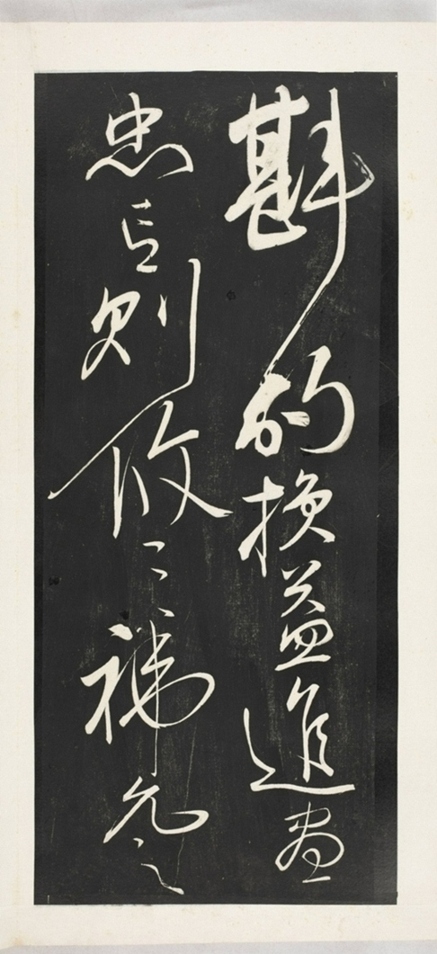 斟酌損益進盡
忠言則攸之禕允之